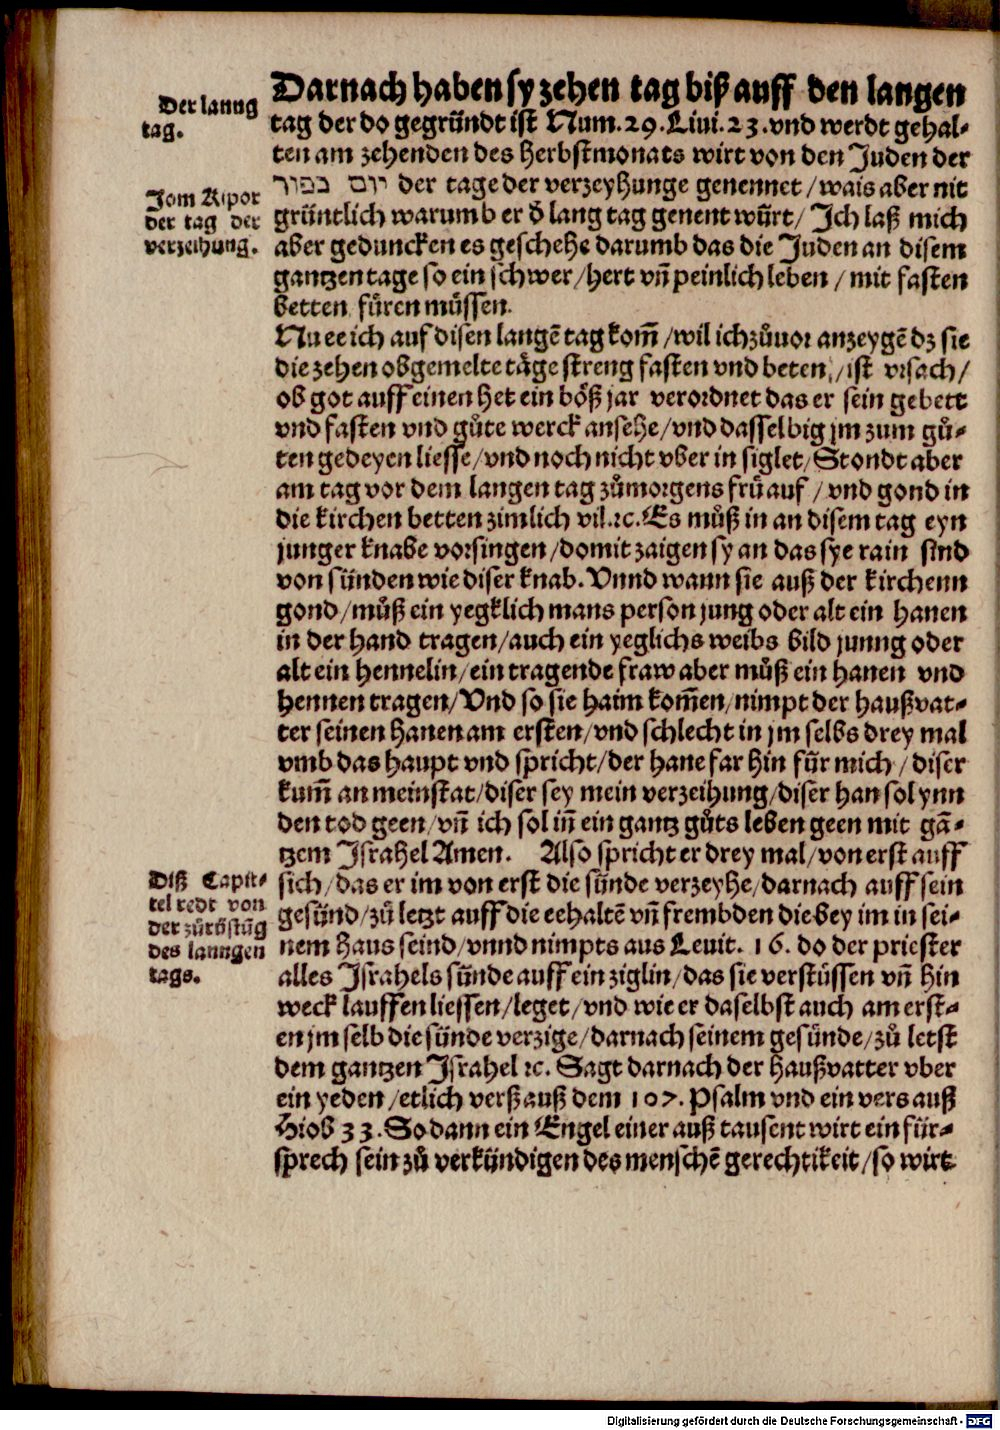 Darnach haben sy zehen tag biß auff den langen
Der lanng
tag.
tag der do gegründt ist Num. 29. Liui. 23. vnd werdt gehal⸗
ten am zehenden des Herbstmonats wirt von den Juden der
יום כפור der tage der verzeyhunge genennet / wais aber nit
Jom Kipor
der tag der
verzeihung.
grüntlich warumb er d̕ lang tag genent würt / Ich laß mich
aber geduncken es geschehe darumb das die Juden an disem
gantzen tage so ein schwer / hert vñ peinlich leben / mit fasten
betten füren müssen.
Nu ee ich auf disen langẽ tag kom̃ / wil ich zůuor anzeygẽ dz sie
die zehen obgemelte täge streng fasten vnd beten / ist vrsach /
ob got auff einen het ein böß jar verordnet das er sein gebett
vnd fasten vnd gůte werck ansehe / vnd dasselbig jm zum gů⸗
ten gedeyen liesse / vnd noch nicht vber in siglet / Stondt aber
am tag vor dem langen tag zůmorgens frü auf / vnd gond in
die kirchen betten zimlich vil. ꝛc. Es můß in an disem tag eyn
junger knabe vorsingen / domit zaigen sy an das sye rain sind
von sünden wie diser knab. Vnnd wann sie auß der kirchenn
gond / můß ein yegklich mans person jung oder alt ein hanen
in der hand tragen / auch ein yeglichs weibs bild junng oder
alt ein hennelin / ein tragende fraw aber můß ein hanen vnd
hennen tragen / Vnd so sie haim kom̃en / nimpt der haußvat⸗
ter seinen hanen am ersten / vnd schlecht in jm selbs drey mal
vmb das haupt vnd spricht / der hane far hin für mich / diser
kum̃ an mein stat / diser sey mein verzeihung / diser han sol ynn
den tod geen / vñ ich sol iñ ein gantz gůts leben geen mit gã⸗
tzem Israhel Amen. Also spricht er drey mal / von erst auff
Diß Capit⸗
tel redt von
der zůrüstũg
des lanngen
tags.
sich / das er im von erst die sünde verzeyhe / darnach auff sein
gesünd / zů letzt auff die eehaltẽ vñ frembden die bey im in sei⸗
nem Haus seind / vnnd nimpts aus Leuit. 16. do der priester
alles Israhels sünde auff ein ziglin / das sie verstüssen vñ hin
weck lauffen liessen / leget / vnd wie er daselbst auch am erst⸗
en jm selb die sünde verzige / darnach seinem gesünde / zů letst
dem gantzen Israhel ꝛc. Sagt darnach der haußvatter vber
ein yeden / etlich verß auß dem 107. Psalm vnd ein vers auß
Hiob 33. So dann ein Engel einer auß tausent wirt ein für⸗
sprech sein zů verkündigen des menschẽ gerechtikeit / so wirt
Digitalisierung gefördert durch die Deutsche Forschungsgemeinschaft - DFG